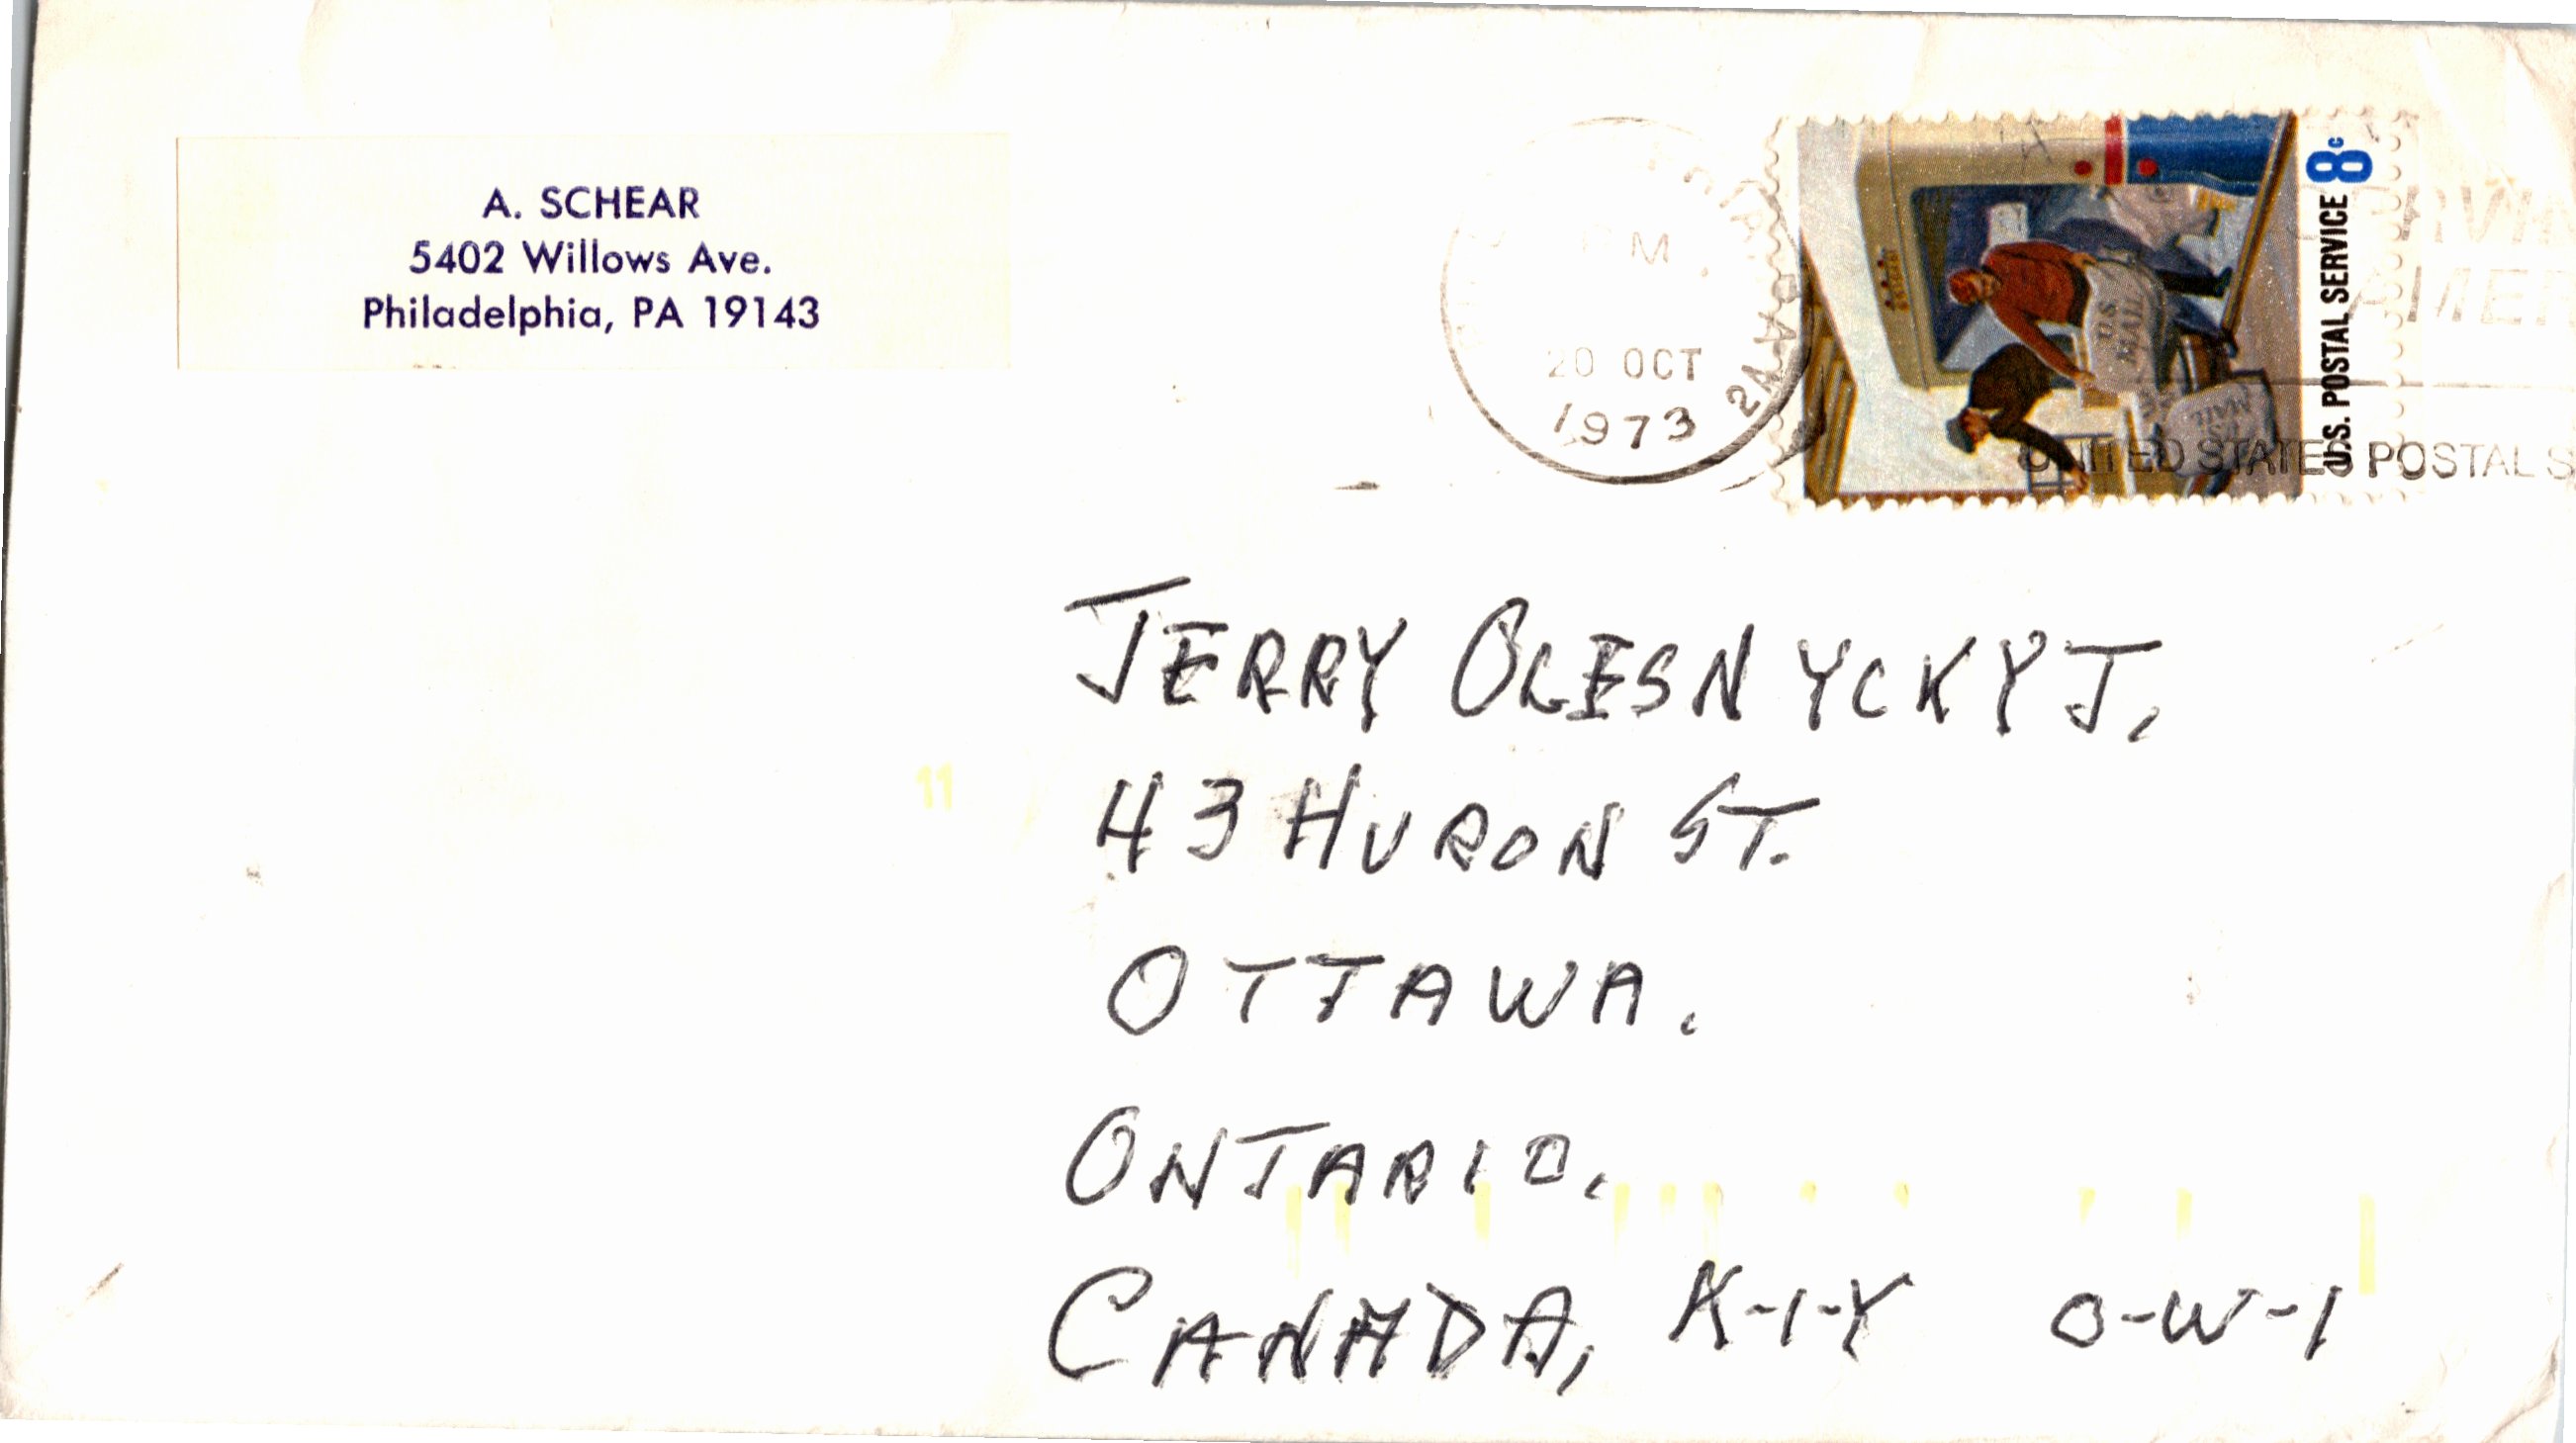 A. SCHEAR
5402 Willows Ave.
Philadelphia, PA 19143
PM
20 OCT
1973
8c
U.S. POSTAL SERVICE
U.S.
MAIL
MAIL
UNITED STATES POSTAL S
JERRY OLESNYCKYJ,
43 HURON ST.
OTTAWA.
ONTARIO,
CANADA, K-1-Y 0-W-1
11